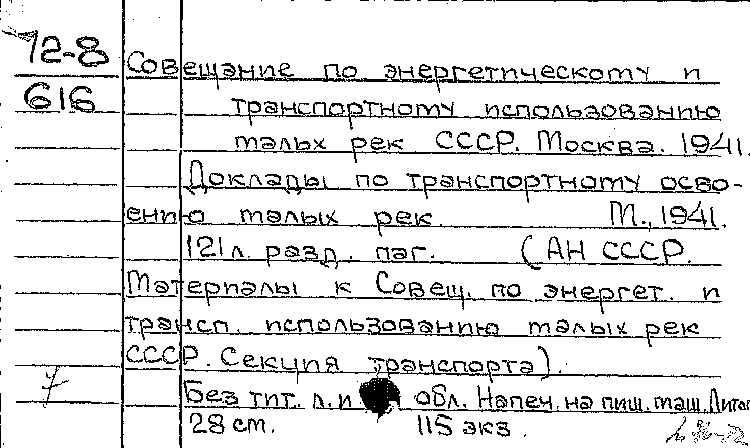 72-8
616
Совещание по энергетическому и
транспортному использованию
малых рек СССР. Москва. 1941.
Доклады по транспортному осво-
ению малых рек М., 1941.
121 л. разд. паг. (АН СССР.
Материалы к Совещ. по энергет. и
трансп. использованию малых рек
СССР. Секция транспорта).
Без тит. л. и обл. Напеч. на пиш. маш. Литог
28 см. 115 экз.